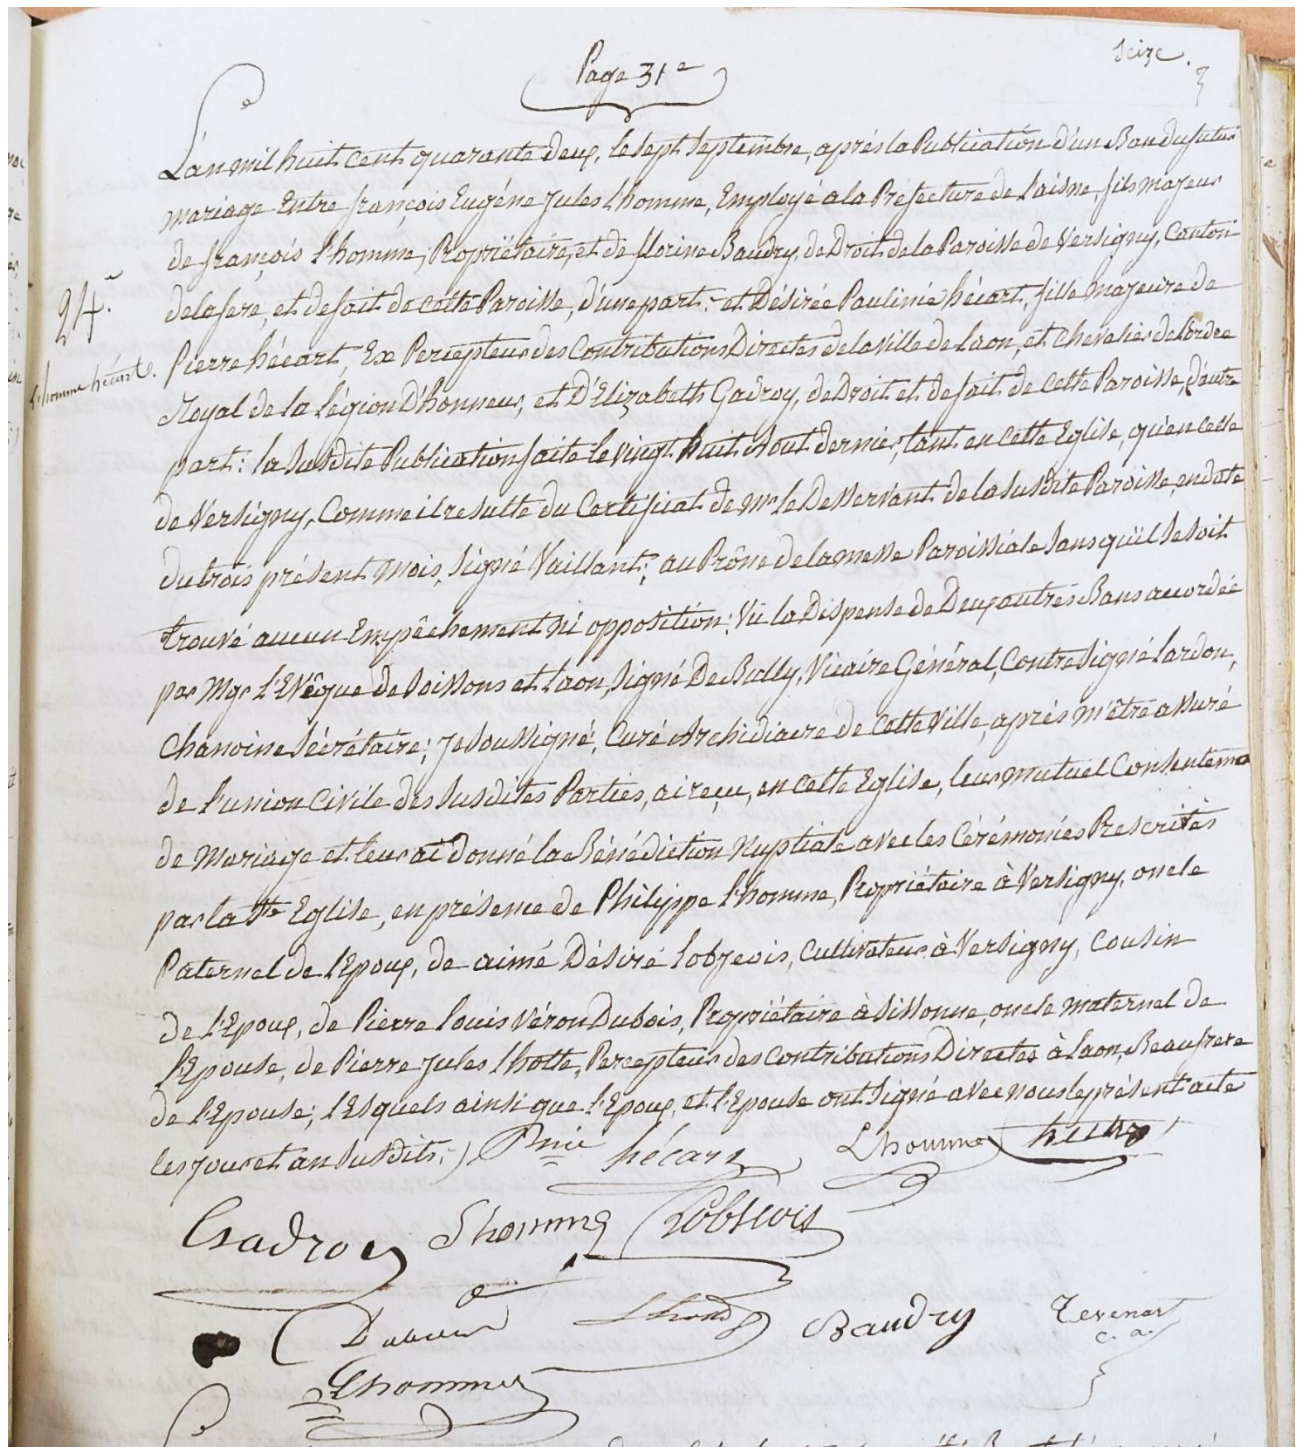 Seize.
Page 31e
L'an mil huit cent quarante deux, le sept Septembre, après la Publication d'un Ban du futur
mariage Entre françois Eugéne Jules Lhomme, Employé a la Préfecture de Laisne, fils majeur
de françois Lhomme, Propriétaire, et de florine Baudry, de Droit de la Paroisse de Versigny, Canton
de lafere, et de fait de cette Paroisse, d'une part: et Désirée Pauline hécart, fille Majeure de
24e
Lhomme hécart.
Pierre hécart, Ex Percepteur des Contributions Directes de la Ville de Laon, et Chevalier de l'ordre
Royal de la Légion D'honneur, et D'Elizabeth Gadroy, de Droit et de fait de cette Paroisse, d'autre
part: la Susdite Publication faite le vingt huit Aout dernier, tant en cette Eglise, qu'en celle
de Versigny, Comme il resulte du Certificat de Mr le Desservant de la Susdite Paroisse, en date
du trois présent mois, Signé Vaillant; au Prône de la messe Paroissiale Sans qu'il Se soit
trouvé aucun Empêchement Ni opposition; Vû la Dispense de Deux autres Bans accordée
par Mgr L'Evêque de Soissons et Laon, Signé De Bully, Vicaire Général, Contresigné Lardon,
Chanoine Sécrétaire; Je Soussigné, Curé Archidiacre de cette Ville, après m'être assuré
de L'union Civile des Susdites Parties, ai reçu, en cette Eglise, leur mutuel Consentement
de Mariage et leur ai donné la Bénédiction Nuptiale avec les Cérémonies Prescrites
par la Ste Eglise, en présence de Philippe Lhomme, Propriétaire à Versigny, oncle
Paternel de L'Epoux, de aimé Désiré Lobjeois, Cultivateur à Versigny, Cousin
de L'Epoux, de Pierre Louis Véron Dubois, Propriétaire à Sissonne, oncle maternel de
L'Epouse, de Pierre Jules Lhotte, Percepteur des Contributions Directes à Laon, Beaufrere
de L'Epouse; Lesquels ainsi que L'Epoux, et L'Epouse ont Signé avec nous le présent acte
les Jour et an Susdits.) Pnie hécart Lhomme
Gadroy Lhomme Lobjeois
Baudry Tévenart
c. a.
Lhomme